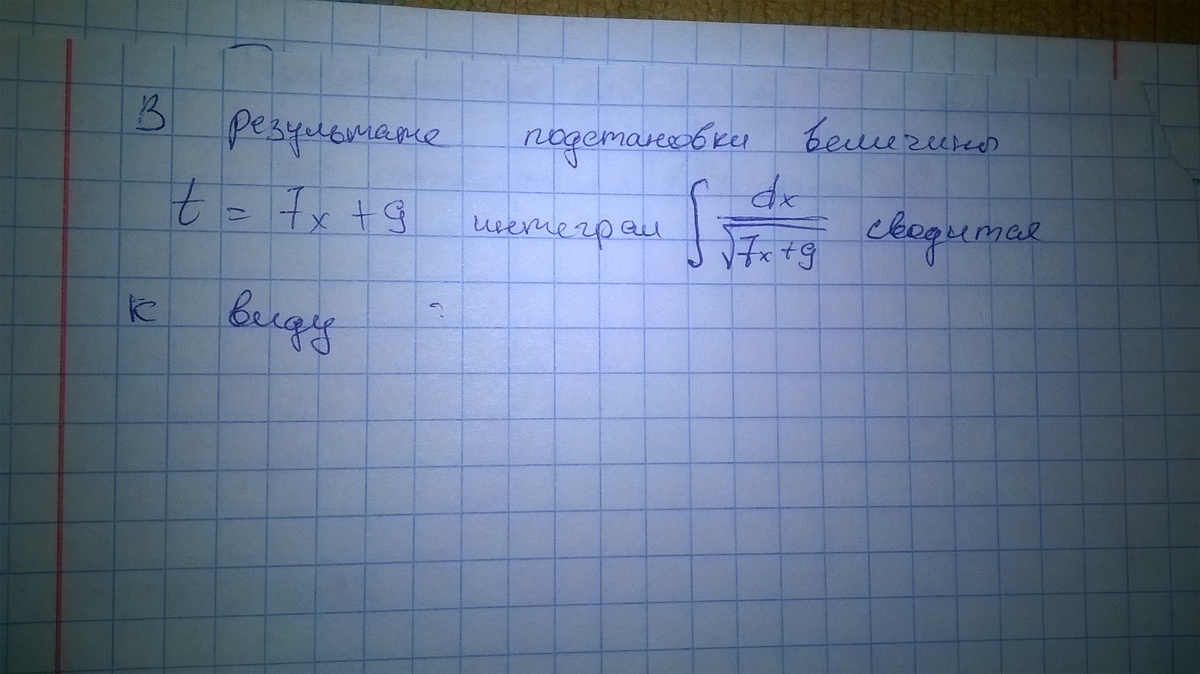 В результате подстановки величины
t = 7x + 9 интеграл ∫ dx / √7x+9 сводится
к виду :